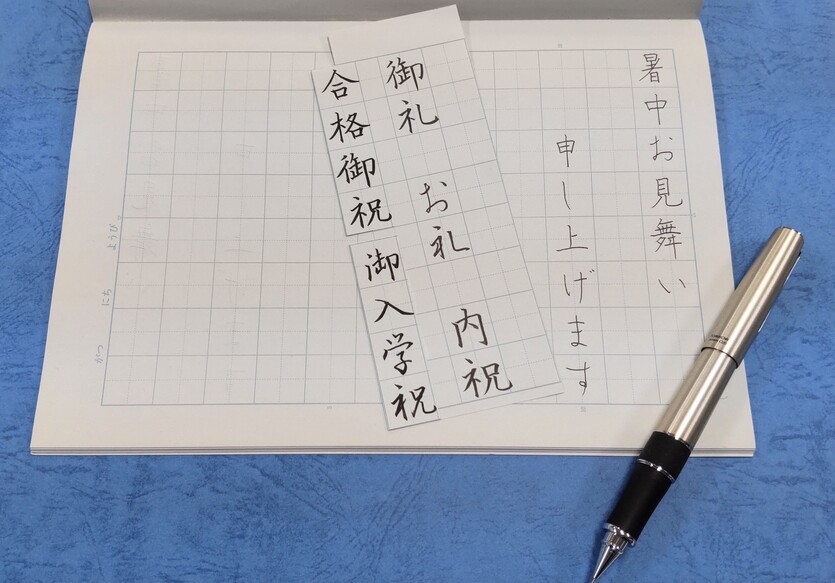 暑中お見舞い
申し上げます
御礼　お礼　内祝
合格御祝
御入学祝
ようび
にち
がつ